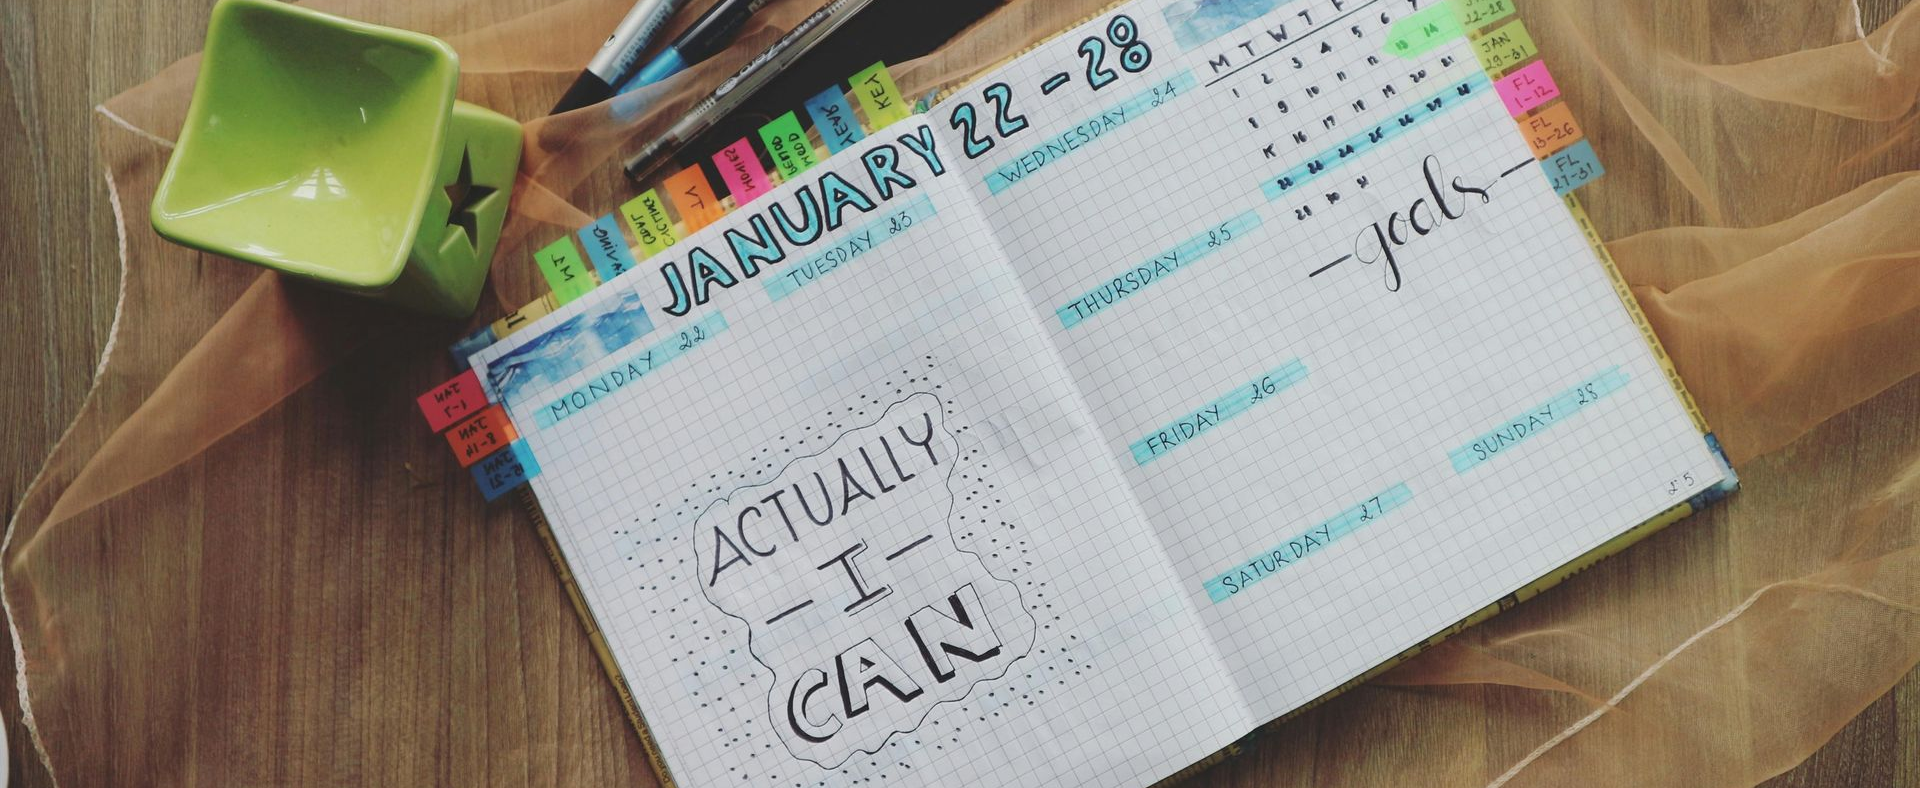 JANUARY 22-28
MONDAY 22
TUESDAY 23
ACTUALLY
- I -
CAN
WEDNESDAY 24
THURSDAY 25
FRIDAY 26
SATURDAY 27
SUNDAY 28
M T W T F
1 2 3 4 5 6 7
8 9 10 11 12 13 14
15 16 17 18 19 20 21
22 23 24 25 26 27 28
29 30 31
-goals-
25
KEY
YEAR
MOVIES
TV
GOAL
SAVING
JAN
1-7
JAN
8-14
JAN
22-28
JAN
29-31
FL
1-12
FL
13-26
FL
27-31